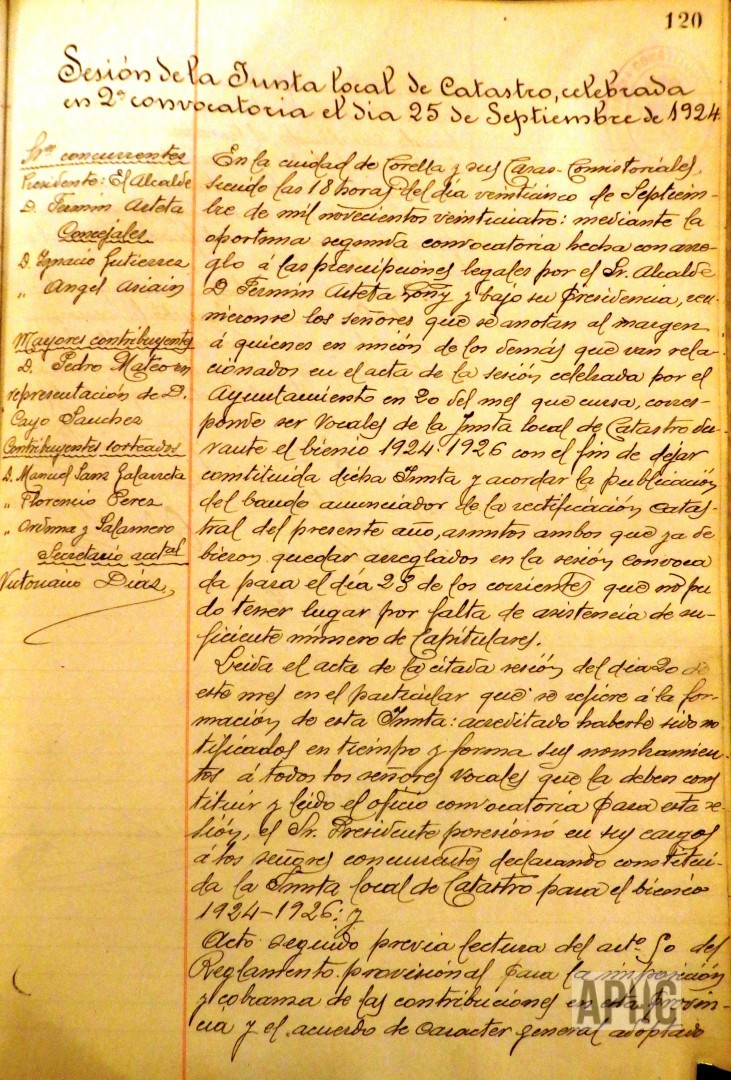 120
Sesión de la Junta local de Catastro, celebrada
en 2ª convocatoria el dia 25 de Septiembre de 1924
Sres concurrentes
Presidente: El Alcalde
D. Fermin Arteta
Concejales
D. Ignacio Gutierrez
" Angel Asiain
Mayores contribuyentes
D. Pedro Mateo en
representación de D.
Cayo Sanchez
Contribuyentes sorteados
D. Manuel Sanz Galarreta
" Florencio Perez
" Salamero
Secretario actal
Victoriano Diaz
En la ciudad de Corella y sus Casas-Consistoriales,
siendo las 18 horas del día veinticinco de Septiem-
bre de mil novecientos veinticuatro: mediante la
oportuna segunda convocatoria hecha con arre-
glo á las prescripciones legales por el Sr. Alcalde
D Fermin Arteta Goñy y bajo su Presidencia, reu-
nieronse los señores que se anotan al margen
á quienes en unión de los demás que van rela-
cionados en el acta de la sesión celebrada por el
Ayuntamiento en 20 del mes que cursa, corres-
ponde ser Vocales de la Junta local de Catastro du-
rante el bienio 1924-1926 con el fin de dejar
constituida dicha Junta y acordar la publicación
del bando anunciador de la rectificación catas-
tral del presente año, asuntos ambos que ya de
bieron quedar arreglados en la sesión convoca
da para el día 23 de los corrientes que no pu-
do tener lugar por falta de asistencia de su-
ficiente número de Capitulares.
Leida el acta de la citada sesión del dia 20 de
este mes en el particular que se refiere á la for-
mación de esta Junta: acreditado haberle sido no
tificados en tiempo y forma sus nombramien-
tos á todos los señores Vocales que la deben cons
tituir y leido el oficio convocatoria para esta se-
sión, el Sr. Presidente posesionó en sus cargos
á los señores concurrentes declarando constitui-
da la Junta local de Catastro para el bienio
1924-1926; y
Acto seguido previa lectura del arto. 50 del
Reglamento provisional para la imposición
y cobranza de las contribuciones en esta provin-
cia y el acuerdo de caracter general adoptado
APHC